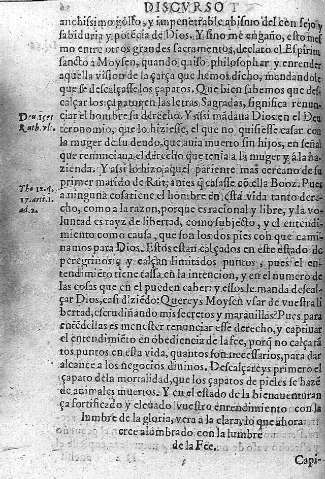 DISCVRSO
anchissimo golfo, y impenetrable abismo del consejo y
sabiduria y potēcia de Dios. Y sino me engaño, esto mes
mo entre otros grandes sacramentos, declaro el Espiritu
sancto a Moysen, quando quiso philosophar y entender
aquella vision de la çarça que hemos dicho, mandandole
que se descalçasse los çapatos. Que bien sabemos que des
calçar los çapatos en las letras Sagradas, significa renun-
ciar el hombre su derecho. Y assi mādaua Dios en el Deu
teronomio, que lo hiziesse, el que no quisiesse casar con
la muger de su deudo, que auia muerto sin hijos, en señal
que renunciaua el derecho que tenia a la muger y a la ha-
zienda. Y assi lo hizo aquel pariente mas cercano de su
primer marido de Rut, antes q̄ casasse cō ella Booz. Pues
a ninguna cosa tiene el hombre en esta vida tanto dere-
cho, como a la razon, porque es racional y libre, y la vo-
luntad es rayz de libertad, como subjecto, y el entendi-
miento como causa, que son los dos pies con que cami-
namos para Dios. Estos estan calçados en este estado de
peregrinos q̄ y calçan limitados puntos, pues el en-
tendimiēto tiene tassa en la intencion, y en el numero de
las cosas que en el pueden caber: y essos le manda descal-
çar Dios, casi diziēdo: Quereys Moysen vsar de vuestra li
bertad, escudriñando mis secretos y marauillas? Pues para
entēdellas es menester renunciar esse derecho, y captiuar
el entendimiēto en obediencia de la fee, porq̄ no calçara
tātos puntos en esta vida, quantos son necessarios, para dar
alcance a los negocios diuinos. Descalçareys primero el
çapato dela mortalidad, que los çapatos de pieles se hazē
de animales muertos. Y en el estado de la bienauenturan
ça fortificado y eleuado vuestro entendimiento con la
lumbre de la gloria, vera a la clara, lo que ahora
cree alombrado con la lumbre
de la Fee.
Capi-
Deu. 25.
Ruth. 4.
Tho. 12. q.
17. art. 1.
ad. 2.